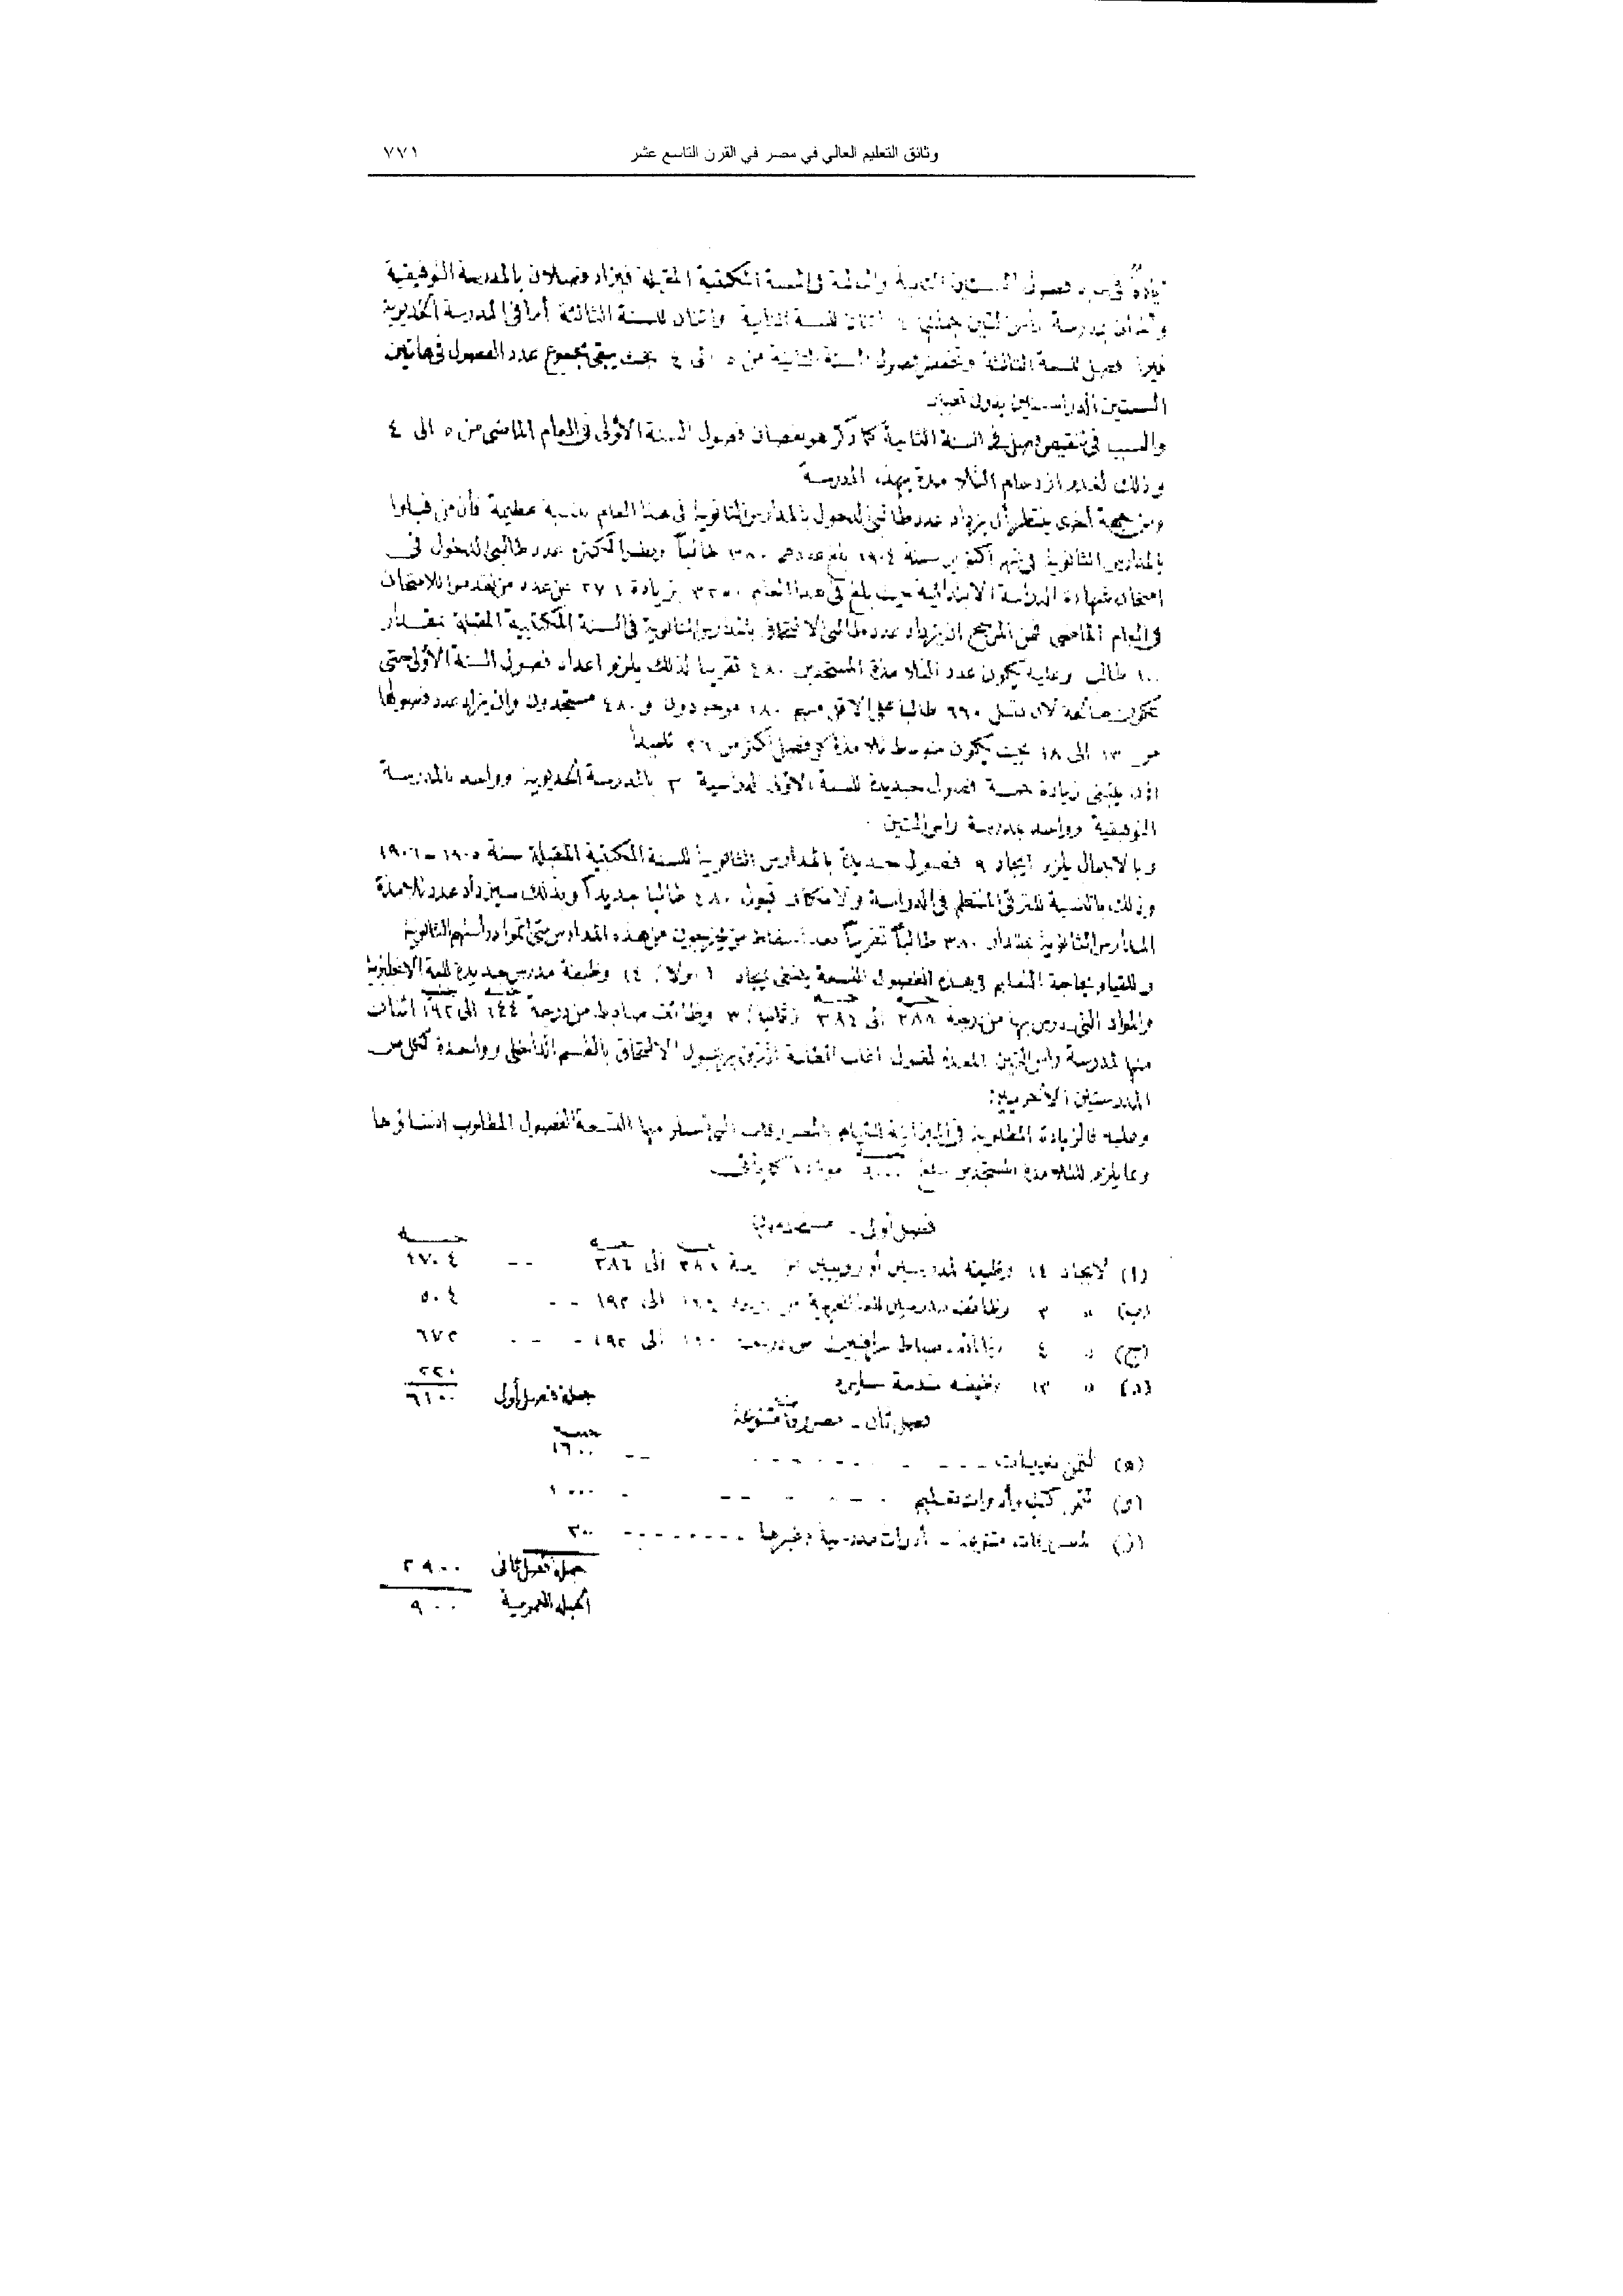 وثائق التعليم العالي في مصر في القرن التاسع عشر ٧٧١
فصول السنتين الثانية والثالثة في السنة المكتبية المقبلة فيزاد فصلان بالمدرسة التوفيقية
بمدرسة رأس التين جملتها ٤ اثنان للسنة الثانية واثنان للسنة الثالثة أما في المدرسة الخديوية
فصل للسنة الثالثة فصول السنة الثانية من ٥ الى ٤ بحيث يبقى مجموع عدد الفصول في هاتين
السنتين الدراسيتين بدون تغيير
والسبب في تنقيص فصل في السنة الثانية كما ذكر هو نقصان فصول السنة الأولى في العام الماضي من ٥ الى ٤
وذلك لعدم ازدحام التلامذة بهذه المدرسة
ومن جهة أخرى ينتظر أن يزداد عدد طالبي الدخول بالمدارس الثانوية في هذا العام بنسبة عظيمة فأن من قبلوا
بالمدارس الثانوية في شهر أكتوبر سنة ١٩٠٤ بلغ عددهم ٣٨٠ طالباً عدد طالبي الدخول في
امتحان شهادة الدراسة الابتدائية حيث بلغ في هذا العام بزيادة ٢٧١ عن عدد من تقدموا للامتحان
في العام الماضي فمن المرجح ان يزداد عدد طالبي الالتحاق بالمدارس الثانوية في السنة المكتبية المقبلة بمقدار
١٠٠ طالب وعليه يكون عدد التلامذة المستجدين ٤٨٠ تقريبا لذلك يلزم اعداد فصول السنة الأولى حتى
تكون صالحة لأن تقبل ٦٦٠ طالبا على الاقل منهم ١٨٠ موجودون و ٤٨٠ مستجدون وان يزاد عدد فصولها
من ١٣ الى ١٨ بحيث يكون متوسط تلامذة كل فصل أكثر من ٣٦ تلميذاً
اذن ينبغي زيادة خمسة فصول جديدة للسنة الأولى الدراسية ٣ بالمدرسة الخديوية وواحد بالمدرسة
التوفيقية وواحد بمدرسة رأس التين
وبالاجمال يلزم ايجاد ٩ فصول جديدة بالمدارس الثانوية للسنة المكتبية المقبلة سنة ١٩٠٥ - ١٩٠٦
وذلك بالنسبة للترقي المنتظم في الدراسة ولامكان قبول ٤٨٠ طالبا جديداً وبذلك سيزداد عدد تلامذة
المدارس الثانوية بمقدار ٣٨٠ طالباً تقريباً بعد اسقاط من يخرجون من هذه المدارس متى أتموا دراستهم الثانوية
وللقيام بحاجة التعليم في هذه الفصول التسعة ينبغي ايجاد أولا) ١٤ وظيفة مدرس جديدة للغة الانجليزية
والمواد التي يدرس بها من درجة الى (ثانيا) ٣ وظائف ضباط من درجة ١٤٤ الى ١٩٢ اثنان
منها لمدرسة رأس التين المعدة لقبول أغلب الطلبة الذين يرغبون الالتحاق بالقسم الداخلي وواحدة لكل من
المدرستين الأخريين:
وعليه فالزيادة المطلوبة في الميزانية للقيام بالمصروفات التي تستلزمها التسعة الفصول المطلوب انشاؤها
وما يلزم للتلامذة المستجدين مبلغ كما يأتي
فصل أول - مستخدمون
(ا) لايجاد ١٤ وظيفة لمدرسين أوروبيين من الى ٣٨٦ -- ٤٧٠٤
(ب) » ٣ وظائف مدرسين للغة العربية الى ١٩٢ -- ٥٠٤
(ج) » ٤ وظائف ضباط من درجة الى ١٩٢ - - - ٦٧٢
(د) » ١٣ وظيفة خدمة سايره ٢٢٠
جملة فصل أول ٦١٠٠
فصل ثان - مصروفات متنوعة
(ه) لثمن -- ١٦٠٠
(و) ثمن كتب وأدوات تعليم - ١٠٠٠
(ز) لمصروفات متنوعة - أدوات مدرسية وغيرها ٣٠٠
جملة فصل ثاني ٢٩٠٠
الجملة العمومية ٩٠٠٠